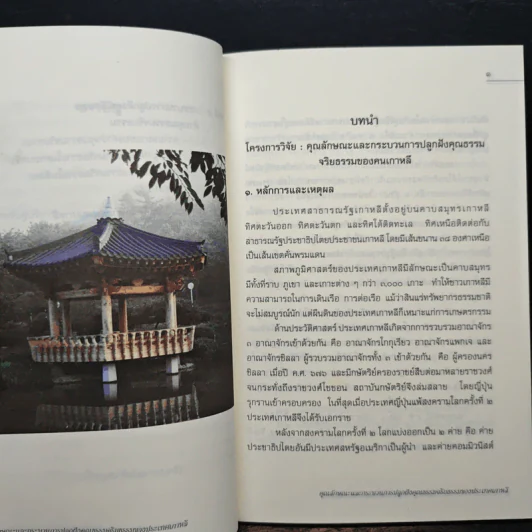 ๑
บทนำ
โครงการวิจัย : คุณลักษณะและกระบวนการปลูกฝังคุณธรรม
จริยธรรมของคนเกาหลี
๑. หลักการและเหตุผล
ประเทศสาธารณรัฐเกาหลีตั้งอยู่บนคาบสมุทรเกาหลี
ทิศตะวันออก ทิศตะวันตก และทิศใต้ติดทะเล ทิศเหนือติดต่อกับ
สาธารณรัฐประชาธิปไตยประชาชนเกาหลี โดยมีเส้นขนาน ๓๘ องศาเหนือ
เป็นเส้นเขตคั่นพรมแดน
สภาพภูมิศาสตร์ของประเทศเกาหลีมีลักษณะเป็นคาบสมุทร
มีทั้งที่ราบ ภูเขา และเกาะต่าง ๆ กว่า ๓,๐๐๐ เกาะ ทำให้ชาวเกาหลีมี
ความสามารถในการเดินเรือ การต่อเรือ แม้ว่าสินแร่ทรัพยากรธรรมชาติ
จะไม่สมบูรณ์นัก แต่ผืนดินของประเทศเกาหลีก็เหมาะแก่การเกษตรกรรม
ด้านประวัติศาสตร์ ประเทศเกาหลีเกิดจากการรวบรวมอาณาจักร
๓ อาณาจักรเข้าด้วยกัน คือ อาณาจักรโกกุเรียว อาณาจักรแพกเจ และ
อาณาจักรชิลลา ผู้รวบรวมอาณาจักรทั้ง ๓ เข้าด้วยกัน คือ ผู้ครองนคร
ชิลลา เมื่อปี ค.ศ. ๖๗๖ และมีกษัตริย์ครองราชย์สืบต่อมาหลายราชวงศ์
จนกระทั่งถึงราชวงศ์โชซอน สถาบันกษัตริย์จึงล่มสลาย โดยญี่ปุ่น
รุกรานเข้าครอบครอง ในที่สุดเมื่อประเทศญี่ปุ่นแพ้สงครามโลกครั้งที่ ๒
ประเทศเกาหลีจึงได้รับเอกราช
หลังจากสงครามโลกครั้งที่ ๒ โลกแบ่งออกเป็น ๒ ค่าย คือ ค่าย
ประชาธิปไตยอันมีประเทศสหรัฐอเมริกาเป็นผู้นำ และค่ายคอมมิวนิสต์
คุณลักษณะและกระบวนการปลูกฝังคุณธรรมจริยธรรมของประเทศเกาหลี